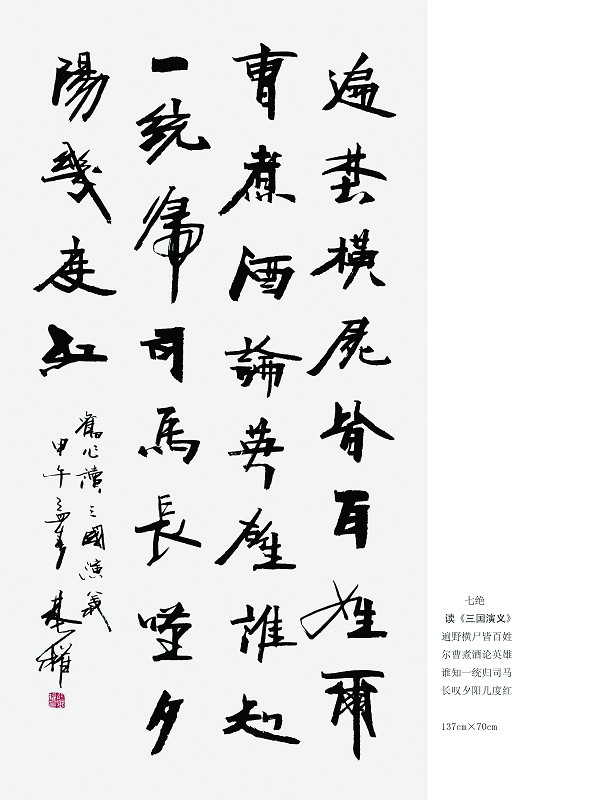 遍埜橫屍皆百姓爾
曹煮酒論英雄誰知
一統歸司馬長嘆夕
陽幾度紅
舊作讀三國演義
甲午孟春
七绝
读《三国演义》
遍野横尸皆百姓
尔曹煮酒论英雄
谁知一统归司马
长叹夕阳几度红
137cm×70cm